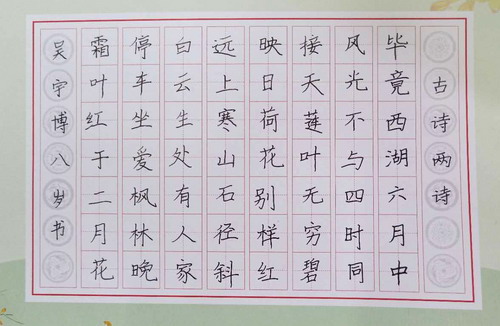 古诗两诗
毕竟西湖六月中
风光不与四时同
接天莲叶无穷碧
映日荷花别样红
远上寒山石径斜
白云生处有人家
停车坐爱枫林晚
霜叶红于二月花
吴宇博八岁书